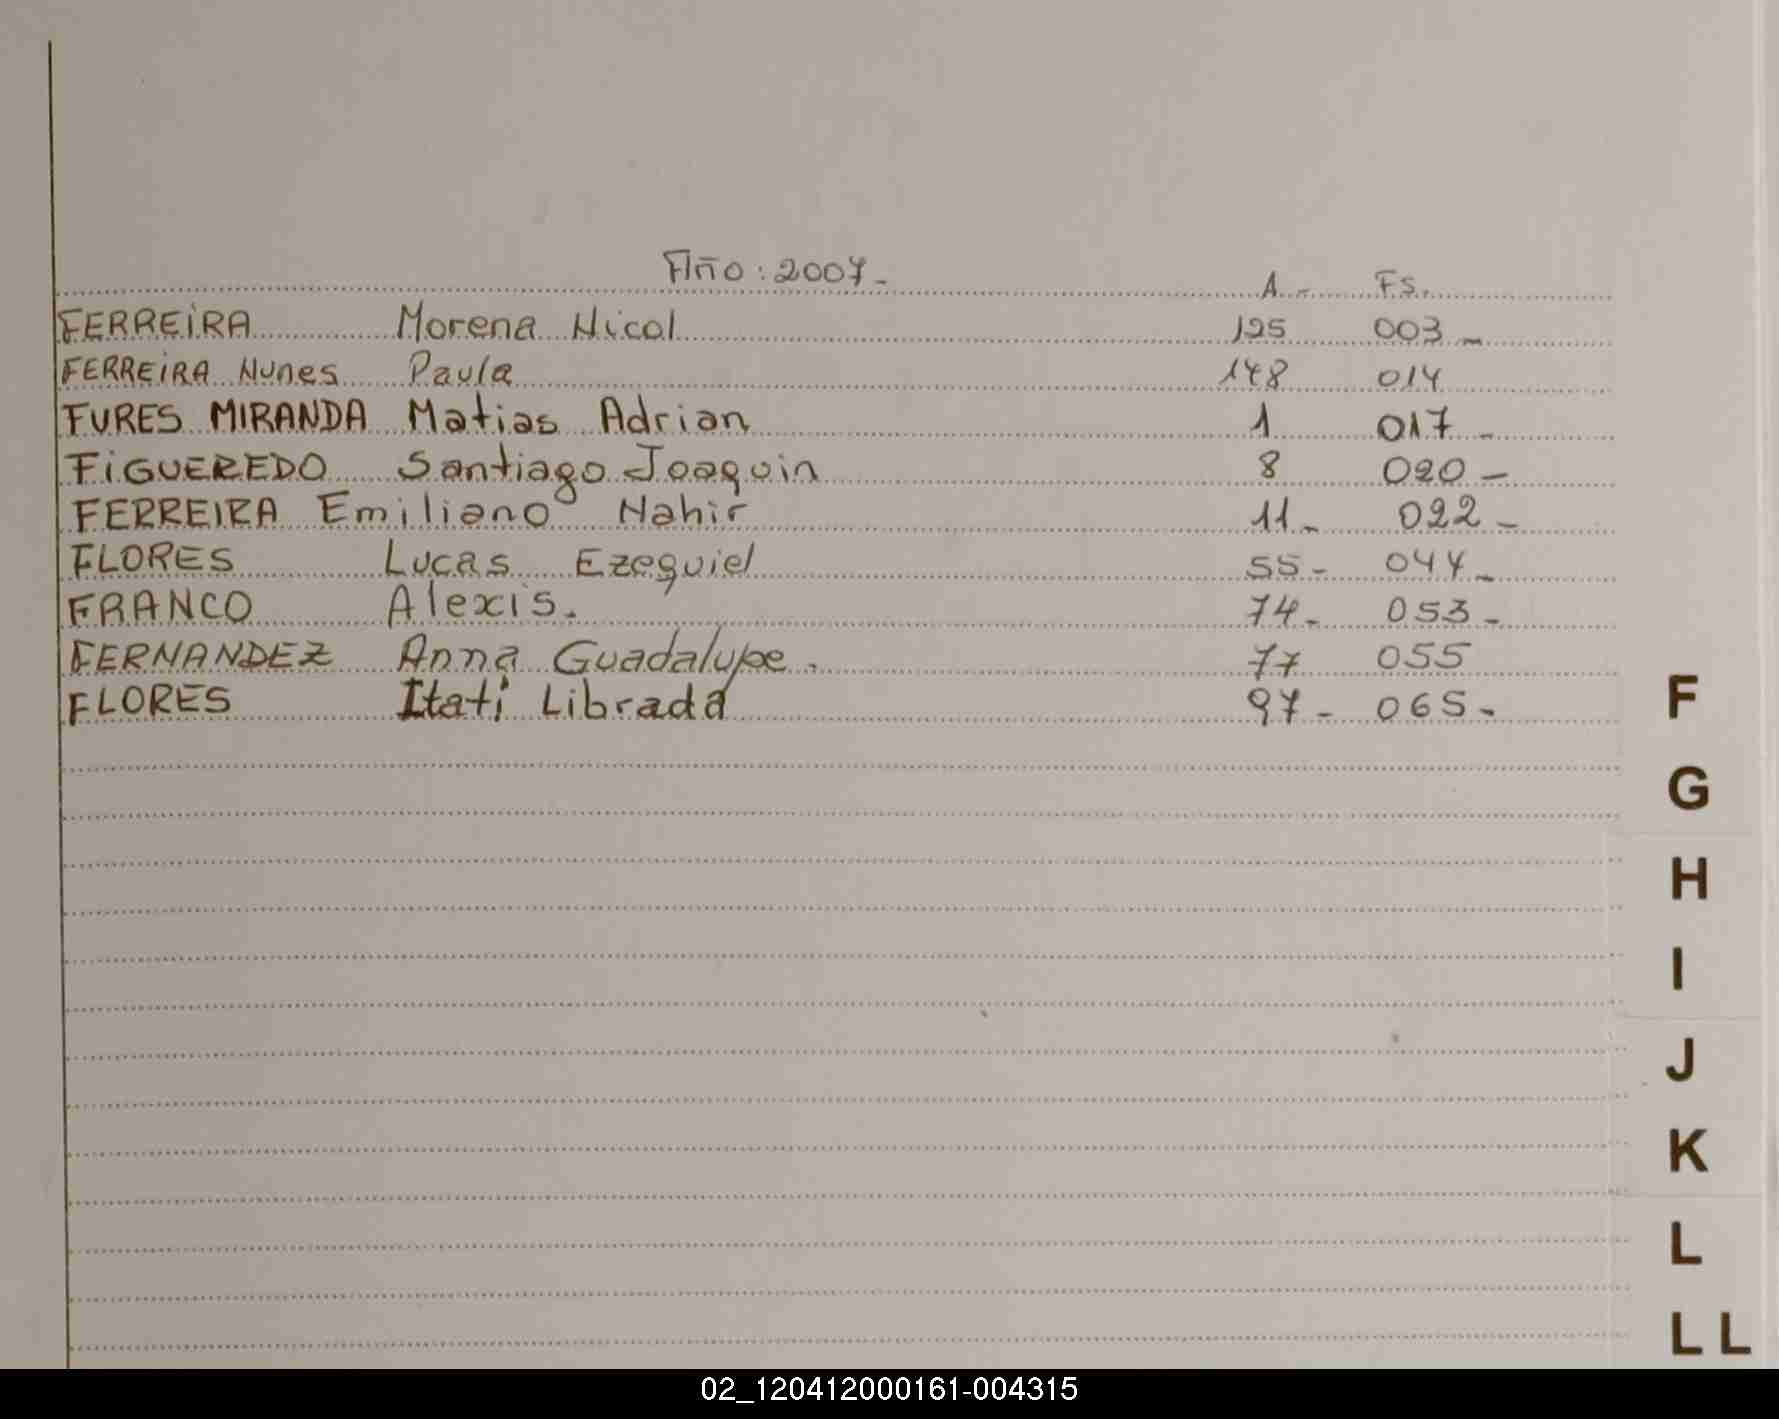 Año: 2007- A.- FS.
FERREIRA Morena Nicol 125 003-
FERREIRA Nunes Paula 148 014
FURES MIRANDA Matias Adrian 1 017-
FIGUEREDO Santiago Joaquin 8 020-
FERREIRA Emiliano Nahir 11- 022-
FLORES Lucas Ezequiel 55- 044-
FRANCO Alexis. 74- 053-
FERNANDEZ Anna Guadalupe. 77 055
FLORES Itatí Librada 97- 065-
F
G
H
I
J
K
L
LL
02_120412000161-004315